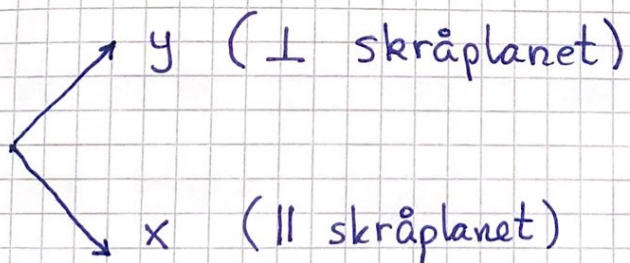 y (⊥ skråplanet)
x (|| skråplanet)